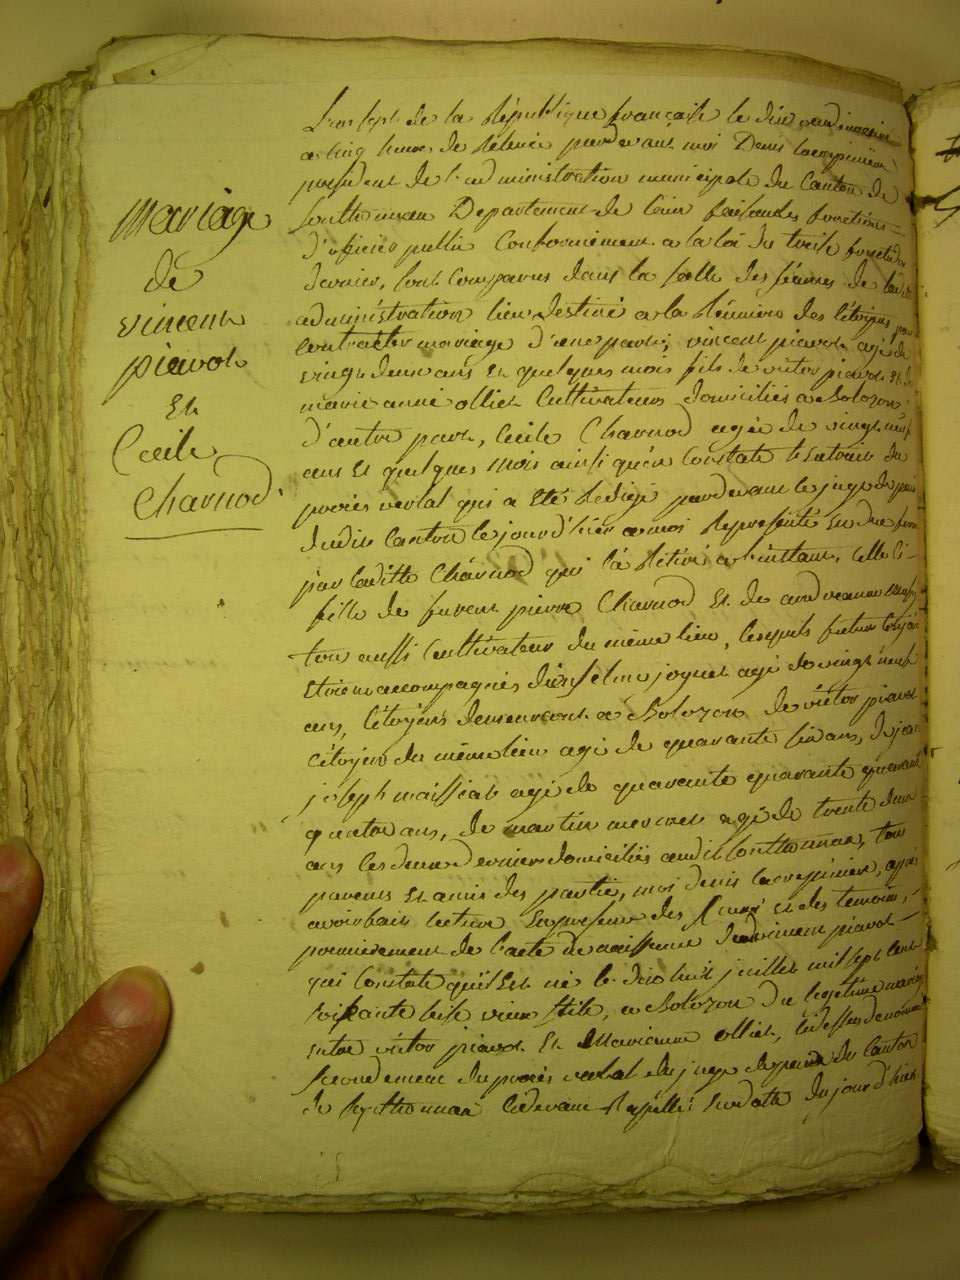 Mariage
de
vincent
piavot
Et
Cecile
Charnod
L'an sept de la République française le dix vendemiaire
a cinq heures de Relevée pardevant moi Denis lacrepiniere
president de l'administration municipale du Canton de
Sonthonnax Departement de l'ain faisandes fonctions
d'officier public Conformement a la loi du treise fructidor
dernier, sont Comparus dans la salle des séances de ladite
administration lieu destiné a la Réunion des Citoyens pour
Contracter mariage d'une part, vincent piavot agé de
vingt deux ans Et quelques mois fils de victor piavot Et de
marie anne olliet Cultivateurs domiciliés a Bolozon
d'autre part, Cecile Charnod agée de vingt neuf
ans Et quelques mois ainsi qu'en Constate le
procès verbal qui a Eté Redigé pardevant le juge de paix
dudit Canton le jour d'hier a moi Représenté En due forme
par laditte Charnod qui l'a Retiré a l'instant, Celle Ci
fille de furent pierre Charnod Et de andreanne
aussi Cultivateur du même lieu, lesquels futurs Conjoints
Etoient accompagnés joguet agé de vingt neuf
ans, Citoyen demeurant a Bolozon de victor piavot
Citoyen du même lieu agé de quarante six ans, de jean
joseph maissiat agé de quarante quarante quarante
quatre ans, de martin mermet agé de trente deux
ans les deux derniers domiciliés audit Sonthonnax, tous
parents Et amis des partie, moi denis lacrepiniere, après
avoir fait lecture En presence des Et des temoins,
premierement de l'acte de naissance de vincent piavot
qui Constate qu'il Est né le dix huit juillet mil sept cent
soixante seise vieux stile, a Bolozon du legitime mariage
entre victor piavot Et Marianne olliet, Cydessus denommés
secondement du procès verbal du juge de paix du Canton
de Sonthonnax Cydevant Rapellé En datte du jour d'hier